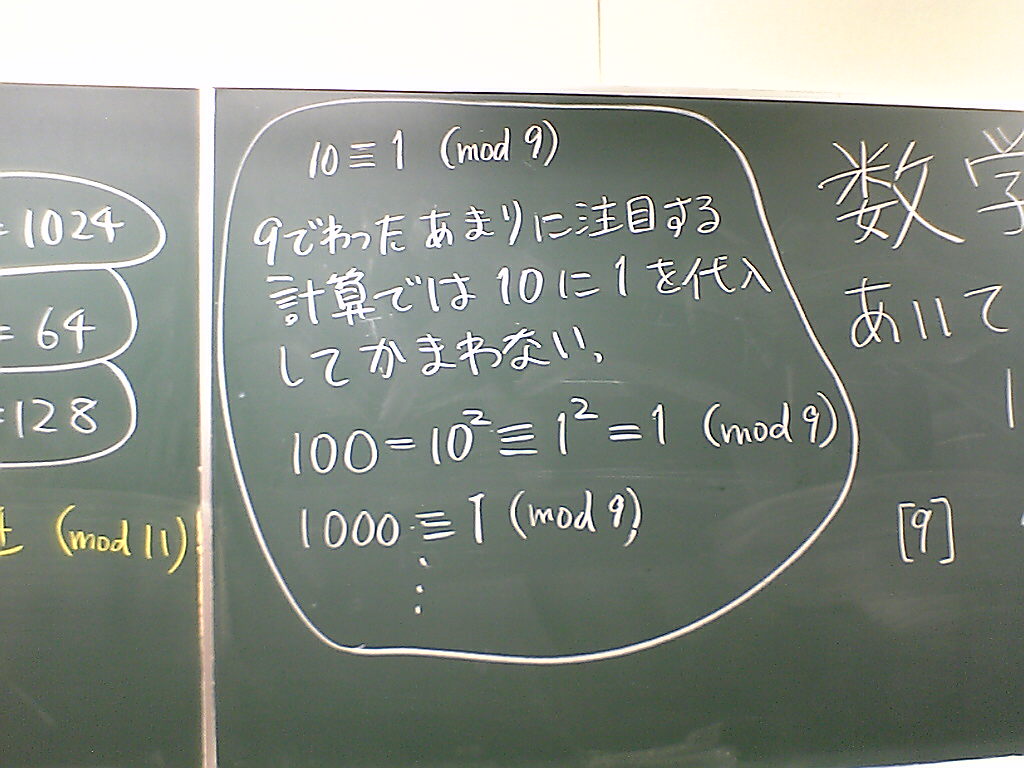 = 1024
= 64
=128
(mod 11)
10≡1 (mod 9)
9でわったあまりに注目する
計算では10に1を代入
してかまわない。
100=10²≡1²=1 (mod 9)
1000≡1 (mod 9)
⋮
数学
あいて
1
[9]